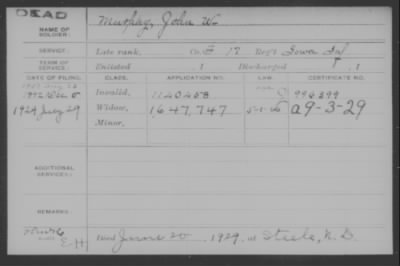 DEAD
NAME OF SOLDIER: Murphy, John W.
SERVICE: Late rank, Co. F 17 Reg't Iowa Inf
TERM OF SERVICE: Enlisted , 1 Discharged , 1
DATE OF FILING. CLASS. APPLICATION NO. LAW. CERTIFICATE NO.
Invalid, 1120458 996399
1929 July 29 Widow, 1,647,747 5-1-20 a9-3-29
Minor,
ADDITIONAL SERVICES:
REMARKS:
Died June 20 1929, at Steele, N.D.